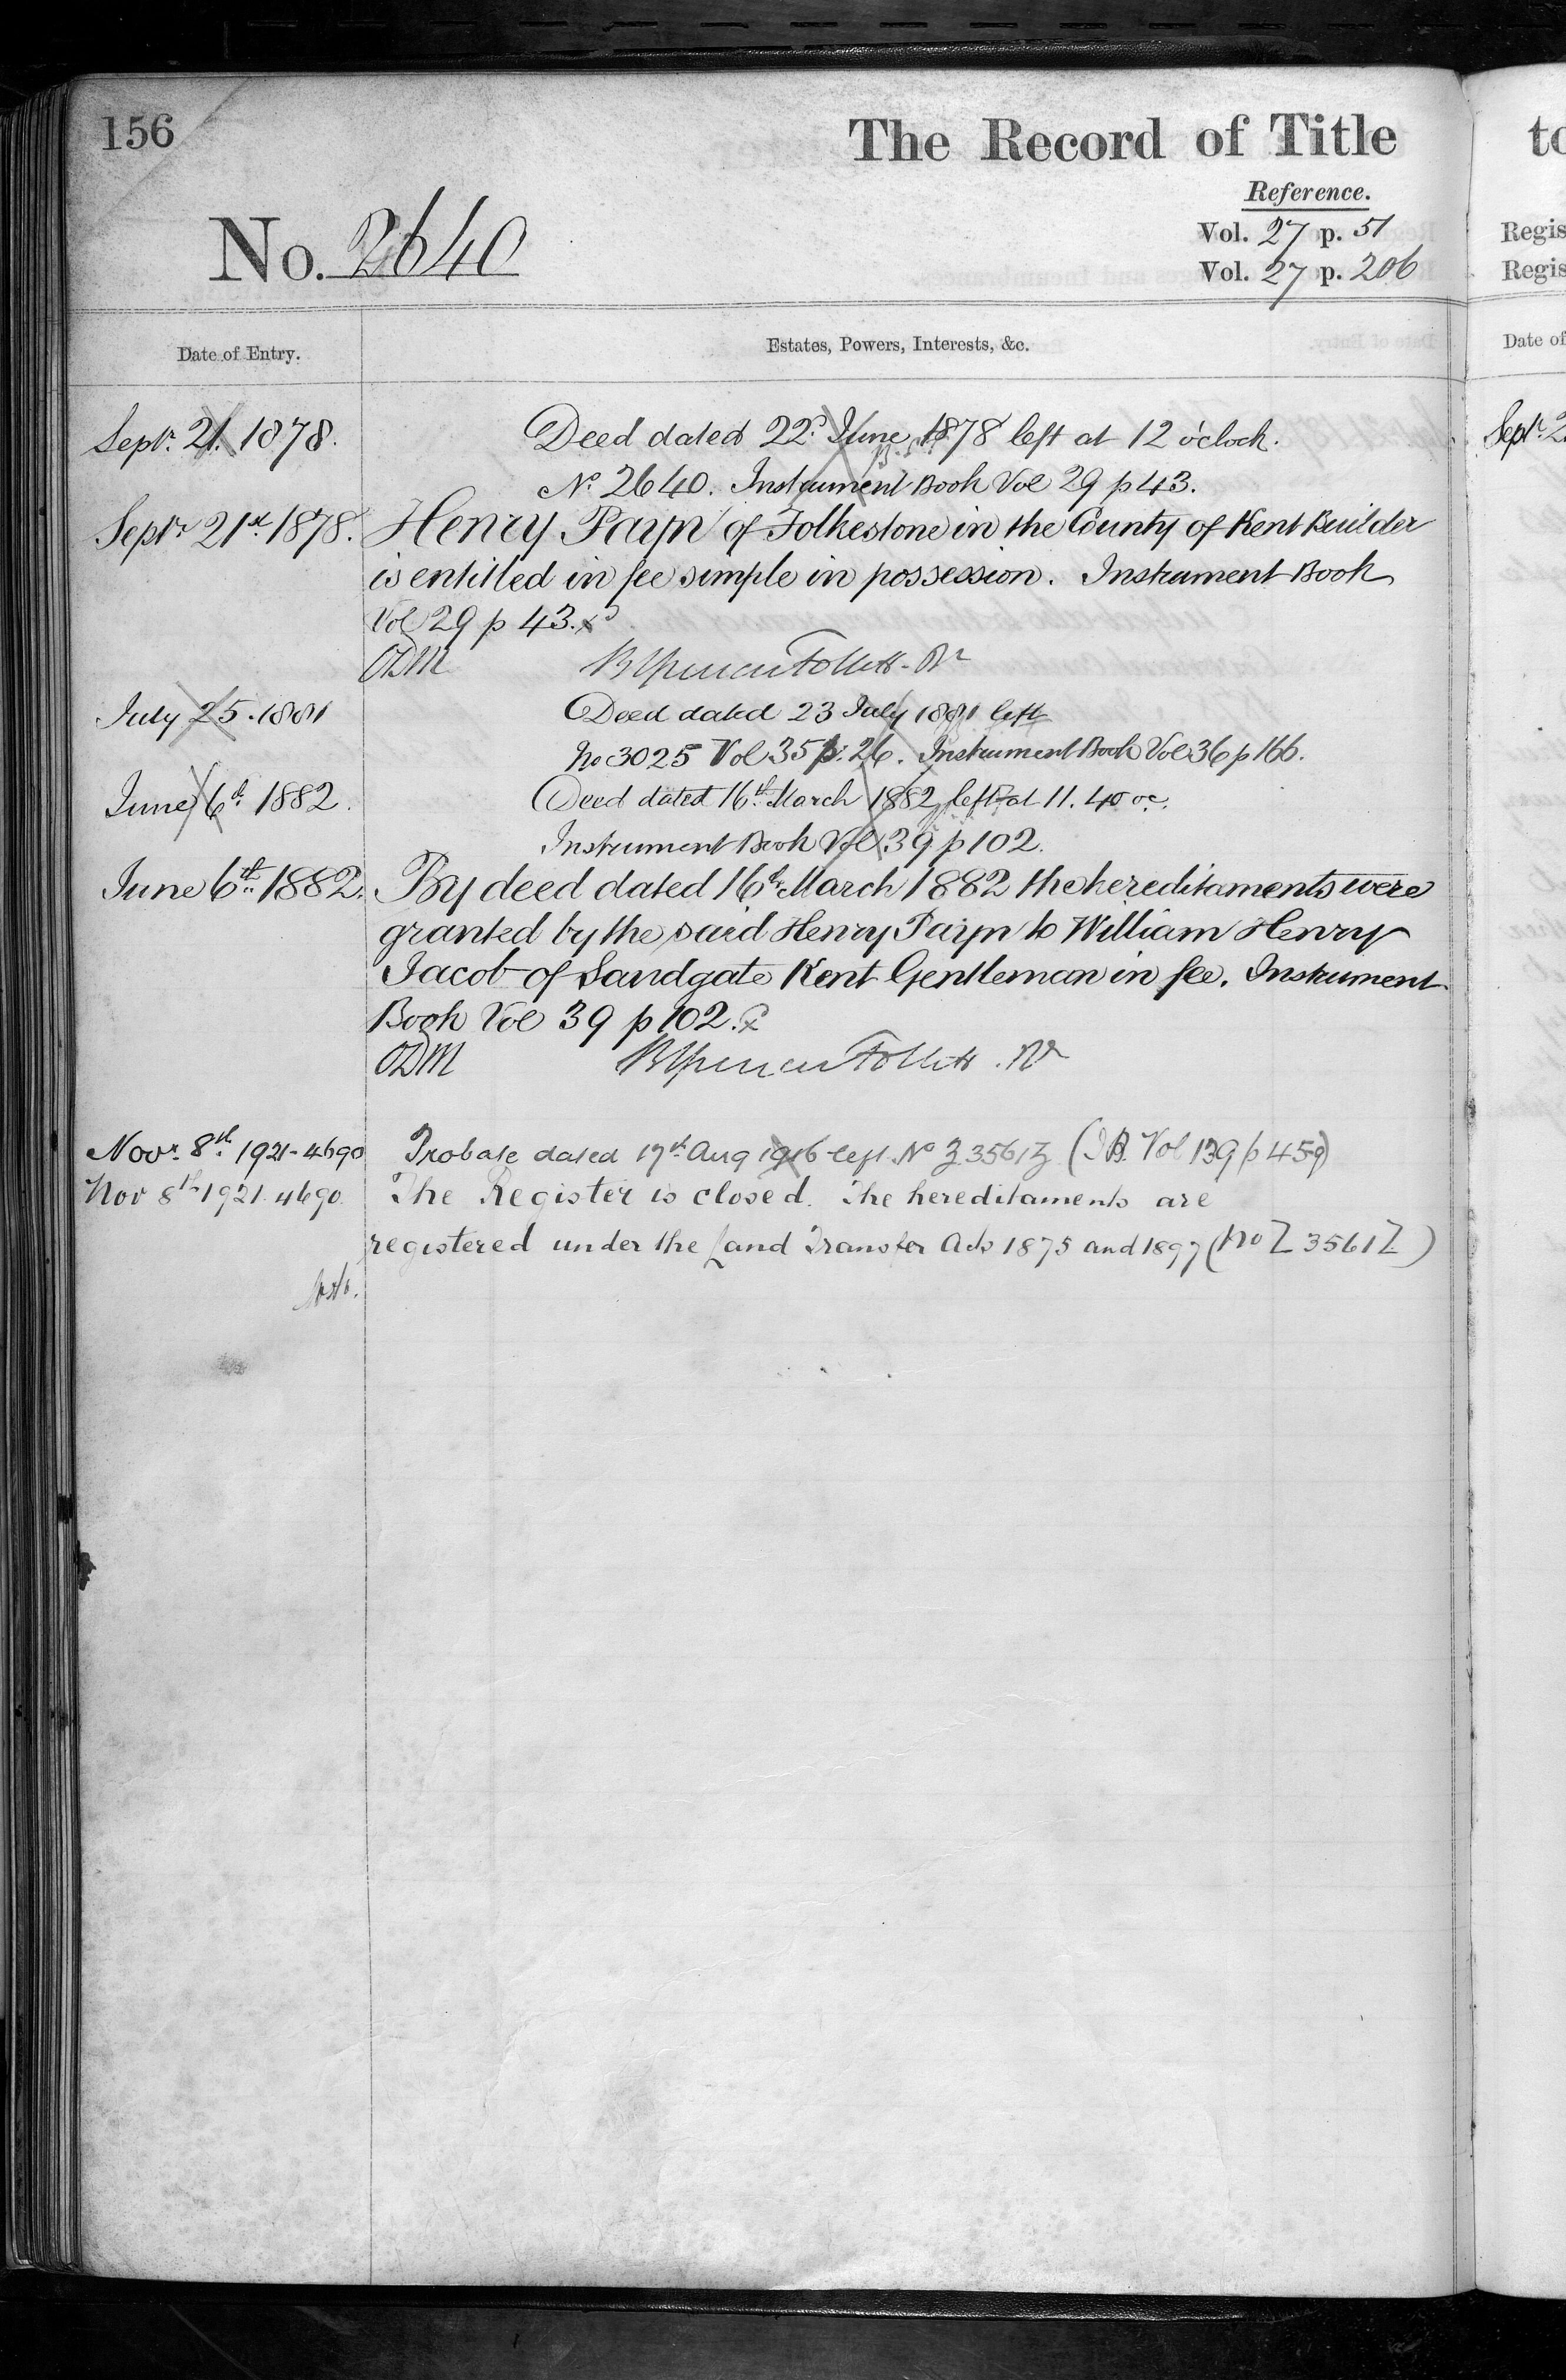 156
The Record of Title
Reference.
No. 2640
Vol. 27 p. 51
Vol. 27 p. 206
Date of Entry.
Estates, Powers, Interests, &c.
Septr. 21. 1878.
Deed dated 22d. June 1878 left at 12 o'clock.
No. 2640. Instrument Book Vol 29 p 43.
Septr 21st 1878.
Henry Payn of Folkestone in the County of Kent Builder
is entitled in fee simple in possession. Instrument Book
Vol 29 p 43.
ODM
B Spencer Follett. Rr
July 25. 1881
Deed dated 23 July 1881 left
No 3025 Vol 35 p. 26. Instrument Book Vol 36 p 166.
June 6th. 1882.
Deed dated 16th. March 1882 left at 11.40 oc.
Instrument Book Vol 39 p 102.
June 6th. 1882.
By deed dated 16th March 1882 the hereditaments were
granted by the said Henry Payn to William Henry
Jacob of Sandgate Kent Gentleman in fee. Instrument
Book Vol 39 p 102.
ODM
B Spencer Follett. Rr
Novr. 8th. 1921 - 4690
Probate dated 17th Aug 1916 left No Z 3561 Z (I.B. Vol 139 p 459)
Nov 8th 1921. 4690
The Register is closed. The hereditaments are
registered under the Land Transfer Acts 1875 and 1897 (No Z 3561 Z)
to
Regis
Regis
Date of
Septr. 2